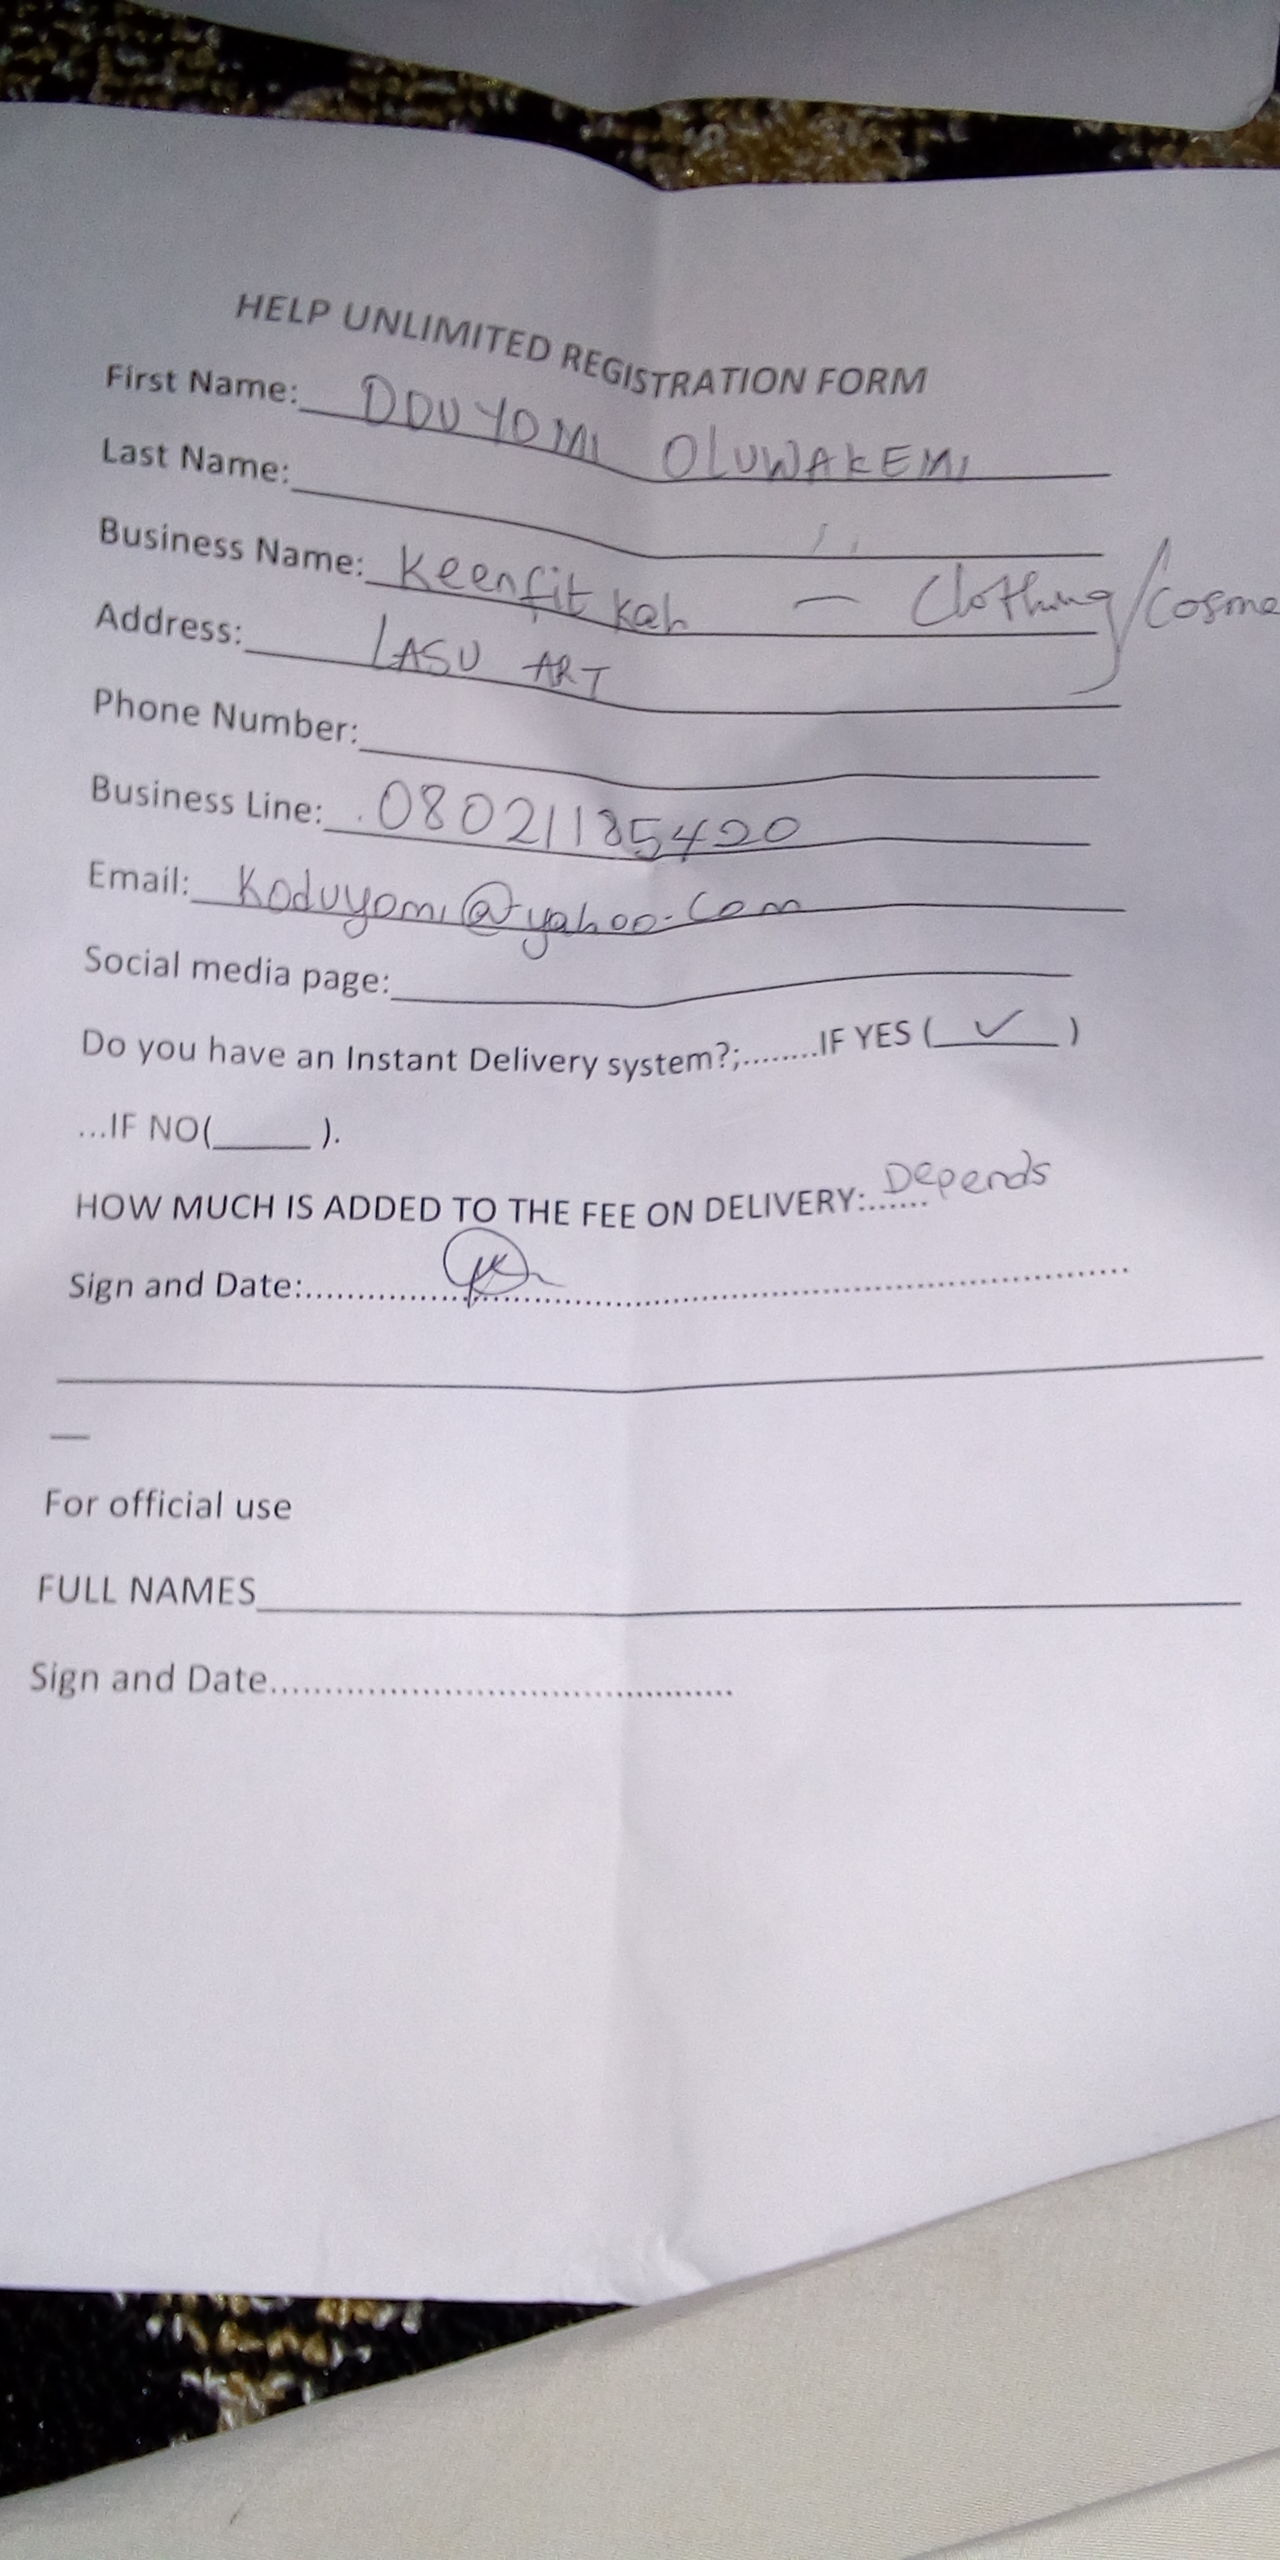 HELP UNLIMITED REGISTRATION FORM
First Name: ODUYOMI OLUWAKEMI
Last Name:
Business Name: Keenfit kah — Clothing/Cosme
Address: LASU ART
Phone Number:
Business Line: 08021185420
Email: Koduyomi@yahoo.com
Social media page:
Do you have an Instant Delivery system?;........IF YES ( ✓ )
...IF NO(_____ ).
HOW MUCH IS ADDED TO THE FEE ON DELIVERY:....... Depends
Sign and Date:
For official use
FULL NAMES
Sign and Date